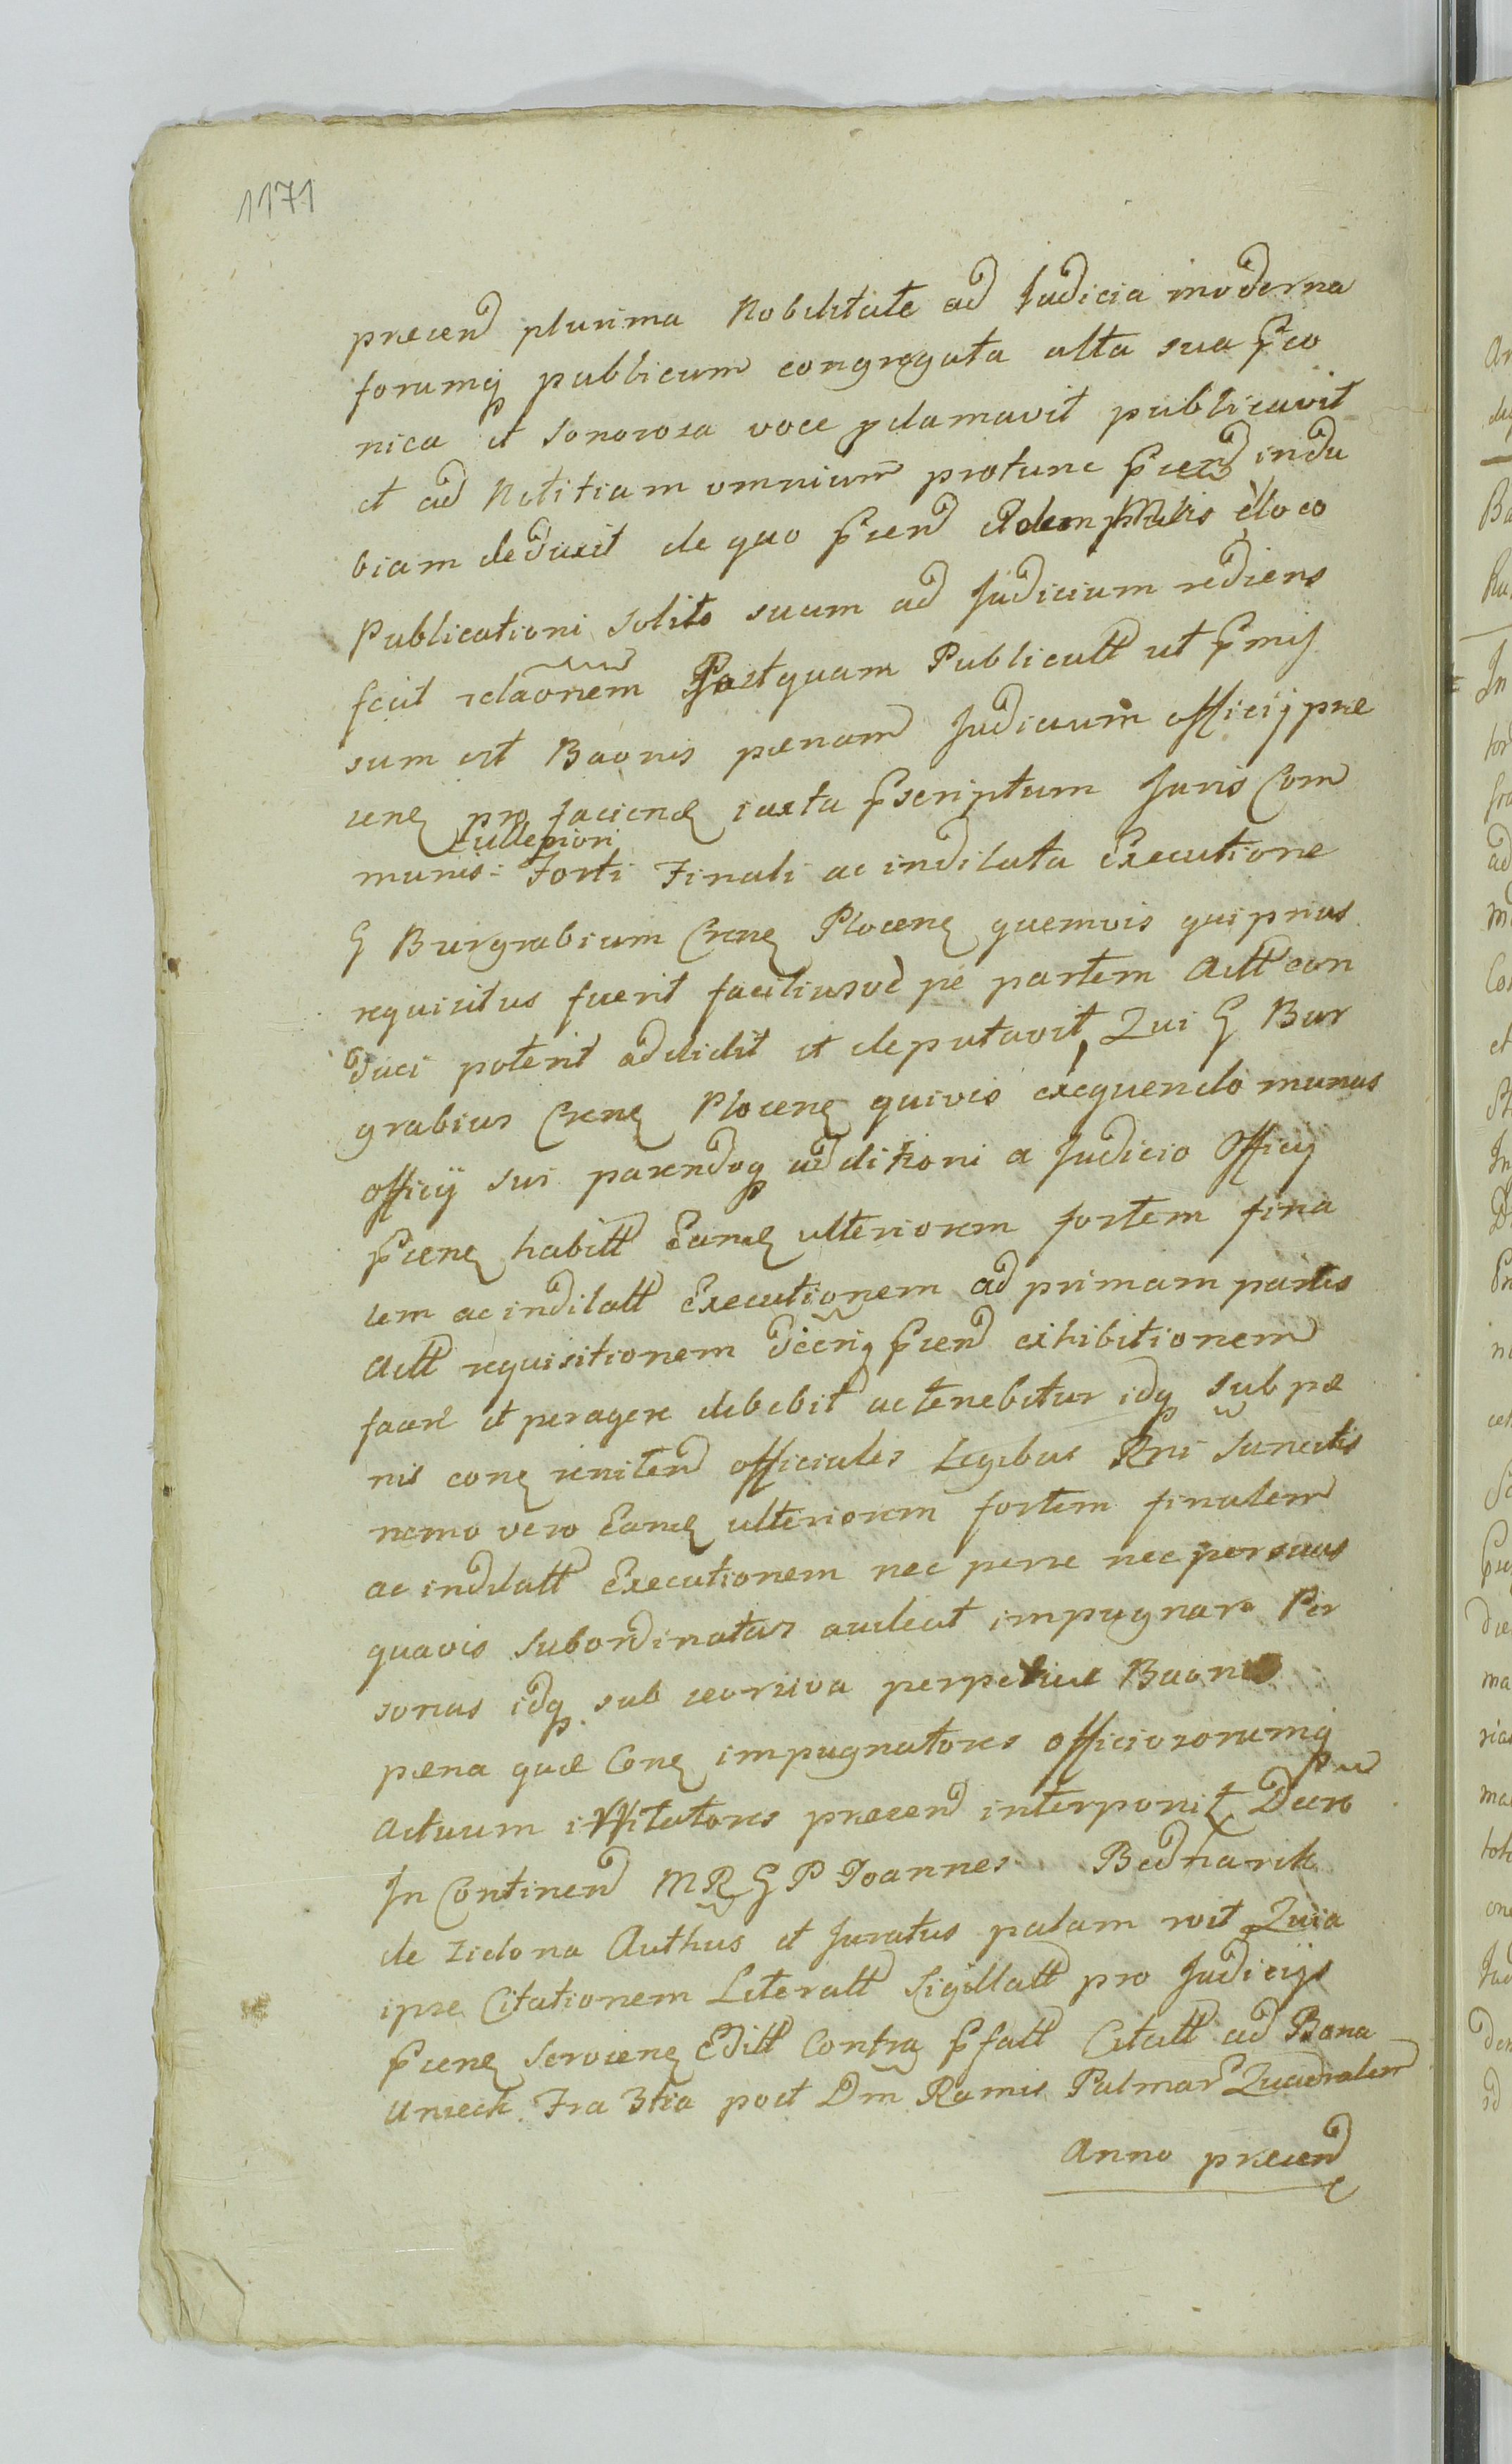 1171
precend plurima Nobilitate ad Judicia moderna
forumq publicum congregata alta sua pco
nica et sonorosa voce pclamavit publicavit
et ad Notitiam omnium protunc pcend indu
biam deduxit de quo pcend Idem Mlis è loco
Publicationi solito suum ad Judicium rediens
fecit relaonem Postquam Publicatt ut pmis
sum est Baonis pœnam Judicium officij præ
cenq pro facienđ iuxta pscriptum Juris Com
munis ulleriori Forti Finali ac indilata Executione
G Burgrabium Crenq Plocenq quemvis qui prius
requisitus fuerit faciliusvè pe partem Actt con
duci poterit addidit et deputavit, Qui G Bur
grabius Crenq Plocenq quivis exequendo munus
officij sui parendoq additioni a Judicio Officij
pcenq habitt Eandq ulteriorem fortem fina
lem ac indilatt Executionem ad primam partis
Actt requisitionem pcend exhibitionem
facere et peragere debebit ac tenebitur idq sub pœ
nis conq renitend officiales Legibus Rni Sancitis
nemo vero Eandq ulteriorem fortem finalem
ac indilatt Executionem nec perse nec per suas
quavis subordinatas audeat impugnare Per
sonas idq sub perpetuæ Baonis
pœna quæ Conq impugnatores officiosorumq
Actuum irritatores precend interponit Decro
In Continend MR G P Joannes Bednarik
de Zidona Authus et Juratus palam rvit Quia
ipse Citationem Literatt Sigillatt pro Judicijs
pcenq Servienq Editt Contra pfatt Citatt ad Bona
Unieck Fra 3tia post Dm Ramis Palmar Quadralem
Anno precend